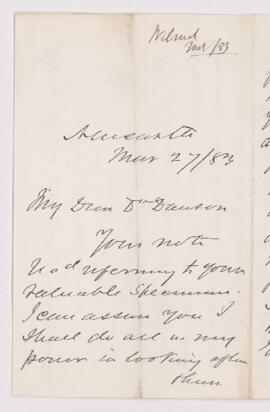 Mar/83
Newcastle
Mar 27/83
My Dear Dr Dawson
Your note
rec'd referring to your
valuable Specimens.
I can assure you I
shall do all in my
power in looking after
them.